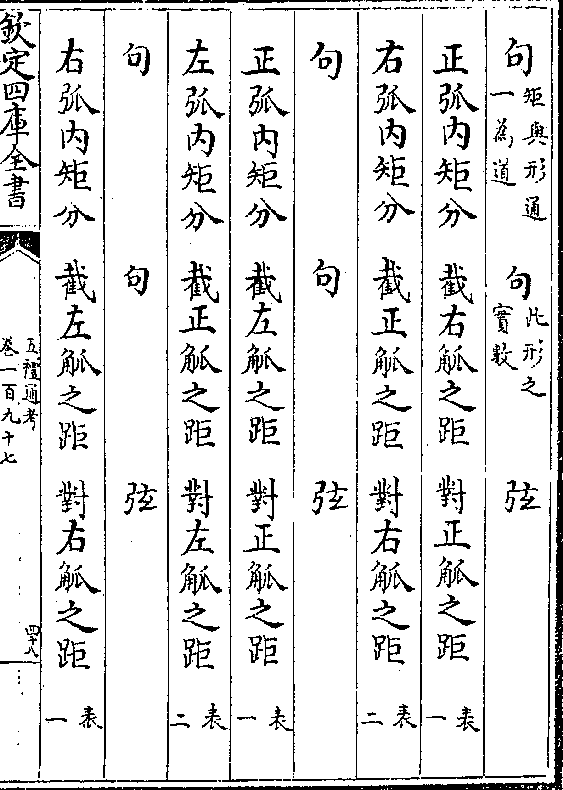 句 矩與形通一為道 句 此形之實數 弦
正弧内矩分 截右觚之距 對正觚之距 表一
右弧内矩分 截正觚之距 對右觚之距 表二
句 句 弦
正弧内矩分 截左觚之距 對正觚之距 表一
左弧内矩分 截正觚之距 對左觚之距 表二
句 句 弦
右弧内矩分 截左觚之距 對右觚之距 表一
欽定四庫全書 五禮通考卷一百九十七 四十八